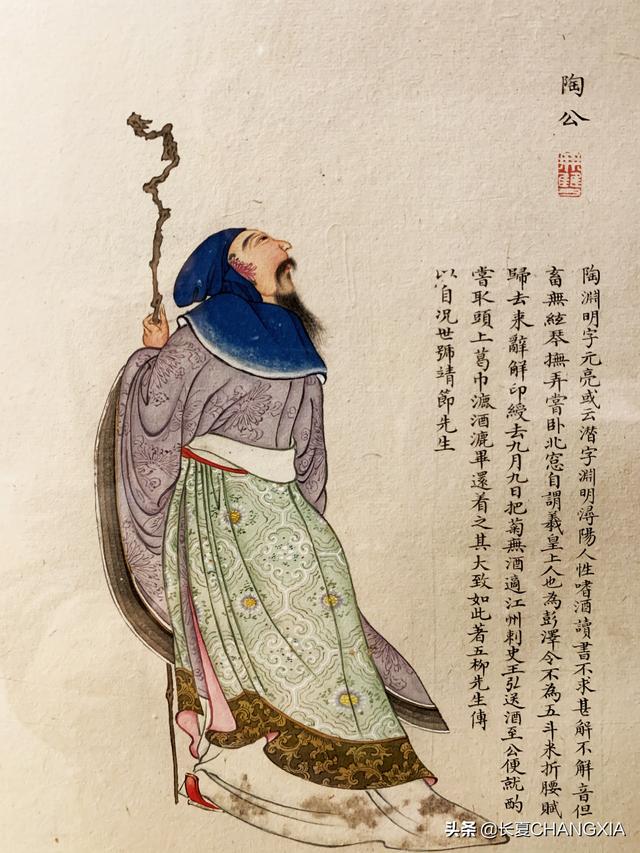 陶公
陶淵明字元亮或云潛字淵明潯陽人性嗜酒讀書不求甚解不解音但
畜無絃琴撫弄嘗卧北窓自謂羲皇上人也為彭澤令不為五斗米折腰賦
歸去来辭解印綬去九月九日把菊無酒適江州刺史王弘送酒至公便就酌
嘗取頭上葛巾漉酒漉畢還着之其大致如此著五柳先生傳
以自況世號靖節先生
头条 @长夏CHANGXIA